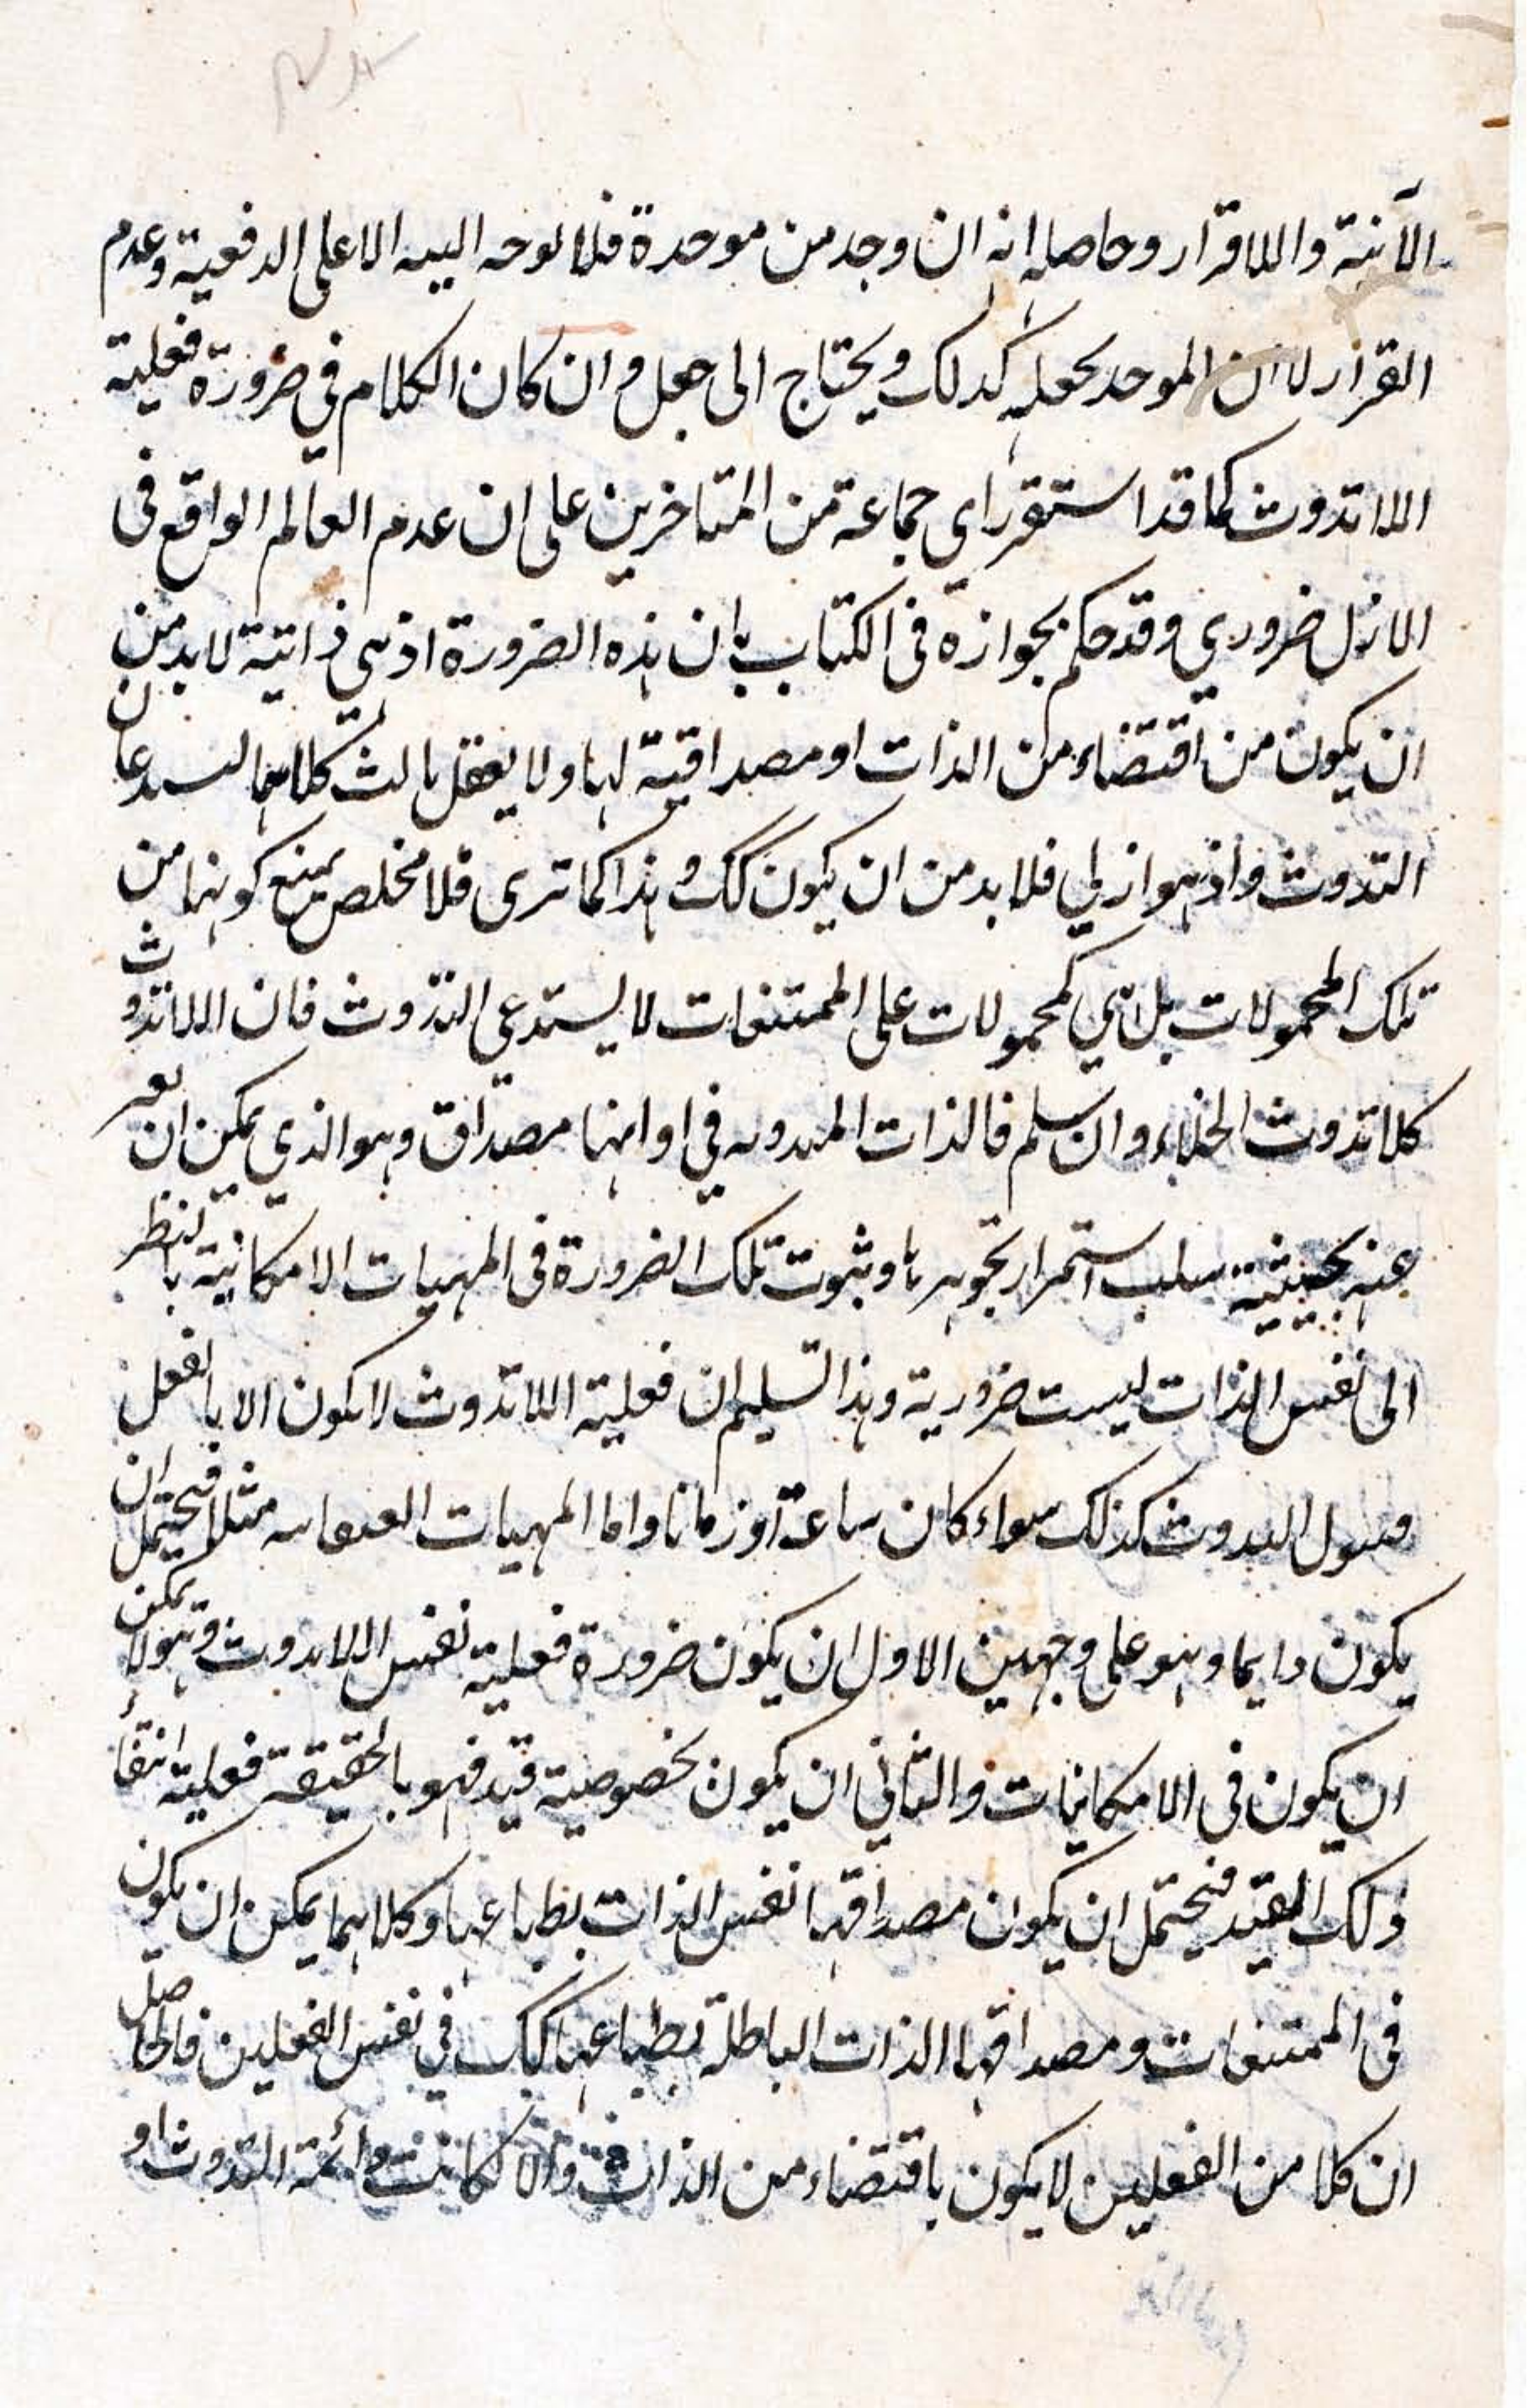 الآنية واللاقرار وحاصله انه ان وجد من موحدة فلا لوحه اليه الا على الدفعية وعدم
القرار لا ان الموحد يجعله كذلك ويحتاج الى جعل وان كان الكلام في ضرورة فعلية
اللاتذوت كما قد استقر راى جماعة من المتاخرين على ان عدم العالم الواقع فى
الازل ضروري وقد حكم بجوازه فى الكتاب بان هذه الضرورة اذ هى ذاتية لا بد من
ان يكون من اقتضاء من الذات او مصداقية لها ولا يعقل ثالث كلاهما يستدعيان
التذوت واذ هو ازلي فلا بد من ان يكون كك وهذا كما ترى فلا مخلص بمنع كونهما من
تلك المحمولات بل هي كمحمولات على الممتنعات لا يستدعى التذوت فان اللاتذوت
كلاتذوت الخلاء وان سلم فالذات فى اوانها مصداق وهو الذي يمكن ان يعبر
عنه بحيثية سلب استمرار تجوهرها وثبوت تلك الضرورة فى المهيات الامكانية بالنظر
الى نفس الذات ليست ضرورية وهذا التسليم ان فعلية اللاتذوت لا يكون الا بالفعل
التذوت كذلك سواء كان ساعة او زمانا واما المهيات مثلا فيحتمل ان
يكون دايما وهو على وجهين الاول ان يكون ضرورة فعلية نفس اللاتذوت وهو لا يمكن
ان يكون فى الامكانيات والثاني ان يكون بخصوصية قيد فهو بالحقيقة فعلية انتفاء
ذلك القيد فيحتمل ان يكون مصداقها نفس الذات بطباعها وكلاهما يمكن ان يكون
فى الممتنعات ومصداقها الذات الباطلة بطباعها كك في نفس الفعلين فالحاصل
ان كلا من الفعلين لا يكون باقتضاء من الذات والا كانت دائمة التذوت او